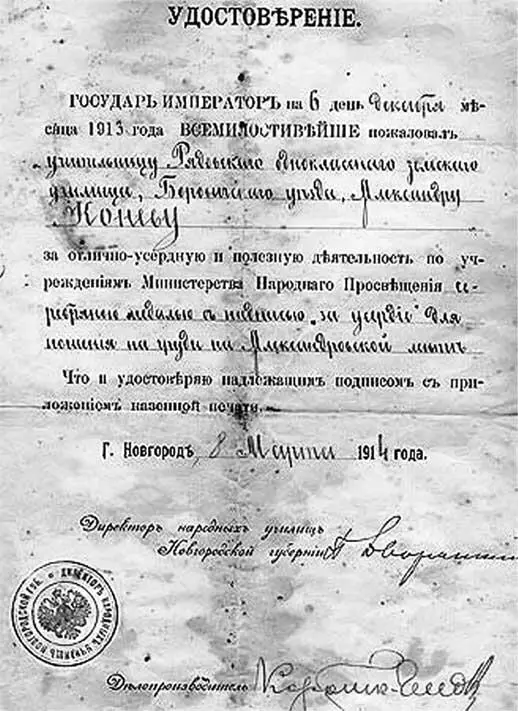 УДОСТОВѢРЕНІЕ.
ГОСУДАРЬ ИМПЕРАТОРЪ на 6 день Декабря мѣ-
сяца 1913 года ВСЕМИЛОСТИВѢЙШЕ пожаловалъ
учительницу Рядовскаго однокласснаго земскаго
училища, Боровичскаго уѣзда, Александру
Коневу
за отлично-усердную и полезную дѣятельность по уч-
режденіямъ Министерства Народнаго Просвѣщенія се-
ребряною медалью съ надписью „за усердіе" для
ношенія на груди на Александровской лентѣ
Что и удостовѣряю надлежащимъ подписомъ съ при-
ложеніемъ казенной печати.
Г. Новгородъ, 8 Марта 1914 года.
Директоръ народныхъ училищъ
Новгородской губерніи
ДИРЕКТОРЪ НАРОДНЫХЪ УЧИЛИЩЪ НОВГОРОДСКОЙ ГУБ.
Дѣлопроизводитель